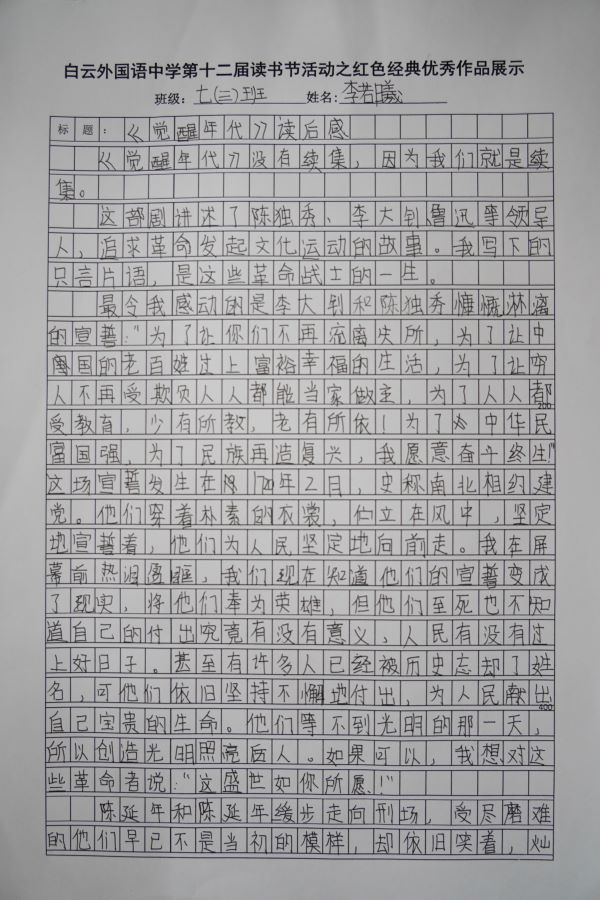 白云外国语中学第十二届读书节活动之红色经典优秀作品展示
班级：七(三)班 姓名：李若曦
标题：《觉醒年代》读后感
《觉醒年代》没有续集，因为我们就是续
集。
这部剧讲述了陈独秀、李大钊、鲁迅等领导
人，追求革命发起文化运动的故事。我写下的
只言片语，是这些革命战士的一生。
最令我感动的是李大钊和陈独秀慷慨淋漓
的宣誓:"为了让你们不再流离失所，为了让中
国的老百姓过上富裕幸福的生活，为了让穷
人不再受欺负人人都能当家做主，为了人人都
200
受教育，少有所教，老有所依！为了中华民
富国强，为了民族再造复兴，我愿意奋斗终生!"
这场宣誓发生在1920年2月，史称南北相约建
党。他们穿着朴素的衣裳，伫立在风中，坚定
地宣誓着，他们为人民坚定地向前走。我在屏
幕前热泪盈眶，我们现在知道他们的宣誓变成
了现实，将他们奉为英雄，但他们至死也不知
道自己的付出究竟有没有意义，人民有没有过
上好日子。甚至有许多人已经被历史忘却了姓
名，可他们依旧坚持不懈地付出，为人民献出
400
自己宝贵的生命。他们等不到光明的那一天，
所以创造光明照亮后人。如果可以，我想对这
些革命者说："这盛世如你所愿！"
陈延年和陈延年缓步走向刑场，受尽磨难
的他们早已不是当初的模样，却依旧笑着，灿